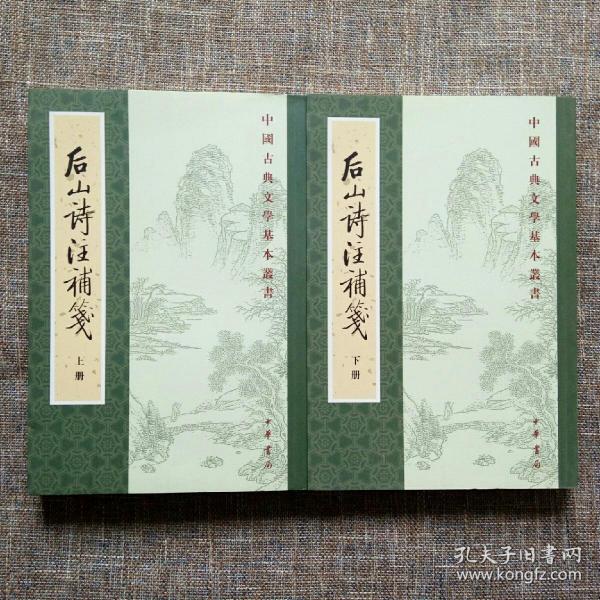 后山诗注補箋
上册
中國古典文學基本叢書
中華書局
后山诗注補箋
下册
中國古典文學基本叢書
中華書局
孔夫子旧書网
www.kongfz.com